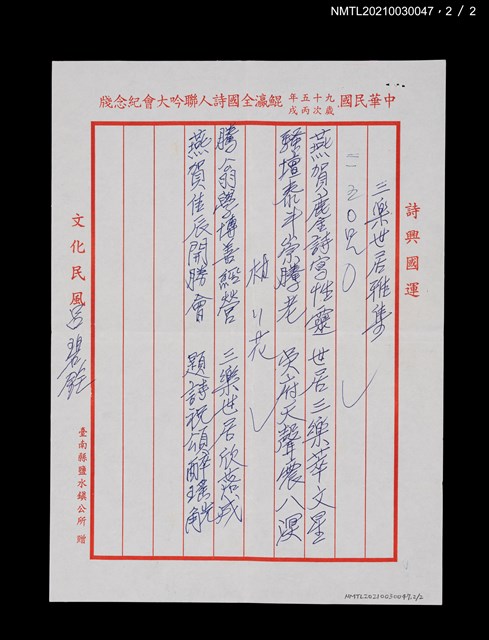 NMTL20210030047，2 / 2
中華民國九十五年歲次丙戌鯤瀛全國詩人聯吟大會紀念牋
詩興國運
三樂世居雅集
燕賀慶全詩寫性靈 世居三樂萃文星
騷壇泰斗崇騰老 吳府天聲震八溟
騰翁學博善經營 三樂世居欣落成
燕賀佳辰開勝會 題詩祝頌醉瑤觥
文化民風
呂碧銓
臺南縣鹽水鎮公所 贈
NMTL20210030047.2/2